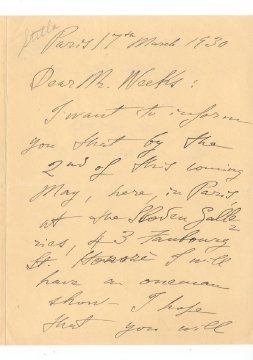 Stella
Paris 17th March 1930
Dear Mr. Weeks:
I want to inform
you that by the
2nd of this coming
May, here in Paris,
at the Sloden Galle
ries, 43 Faubourg
St Honoré I will
have an oneman
show - I hope
that you will